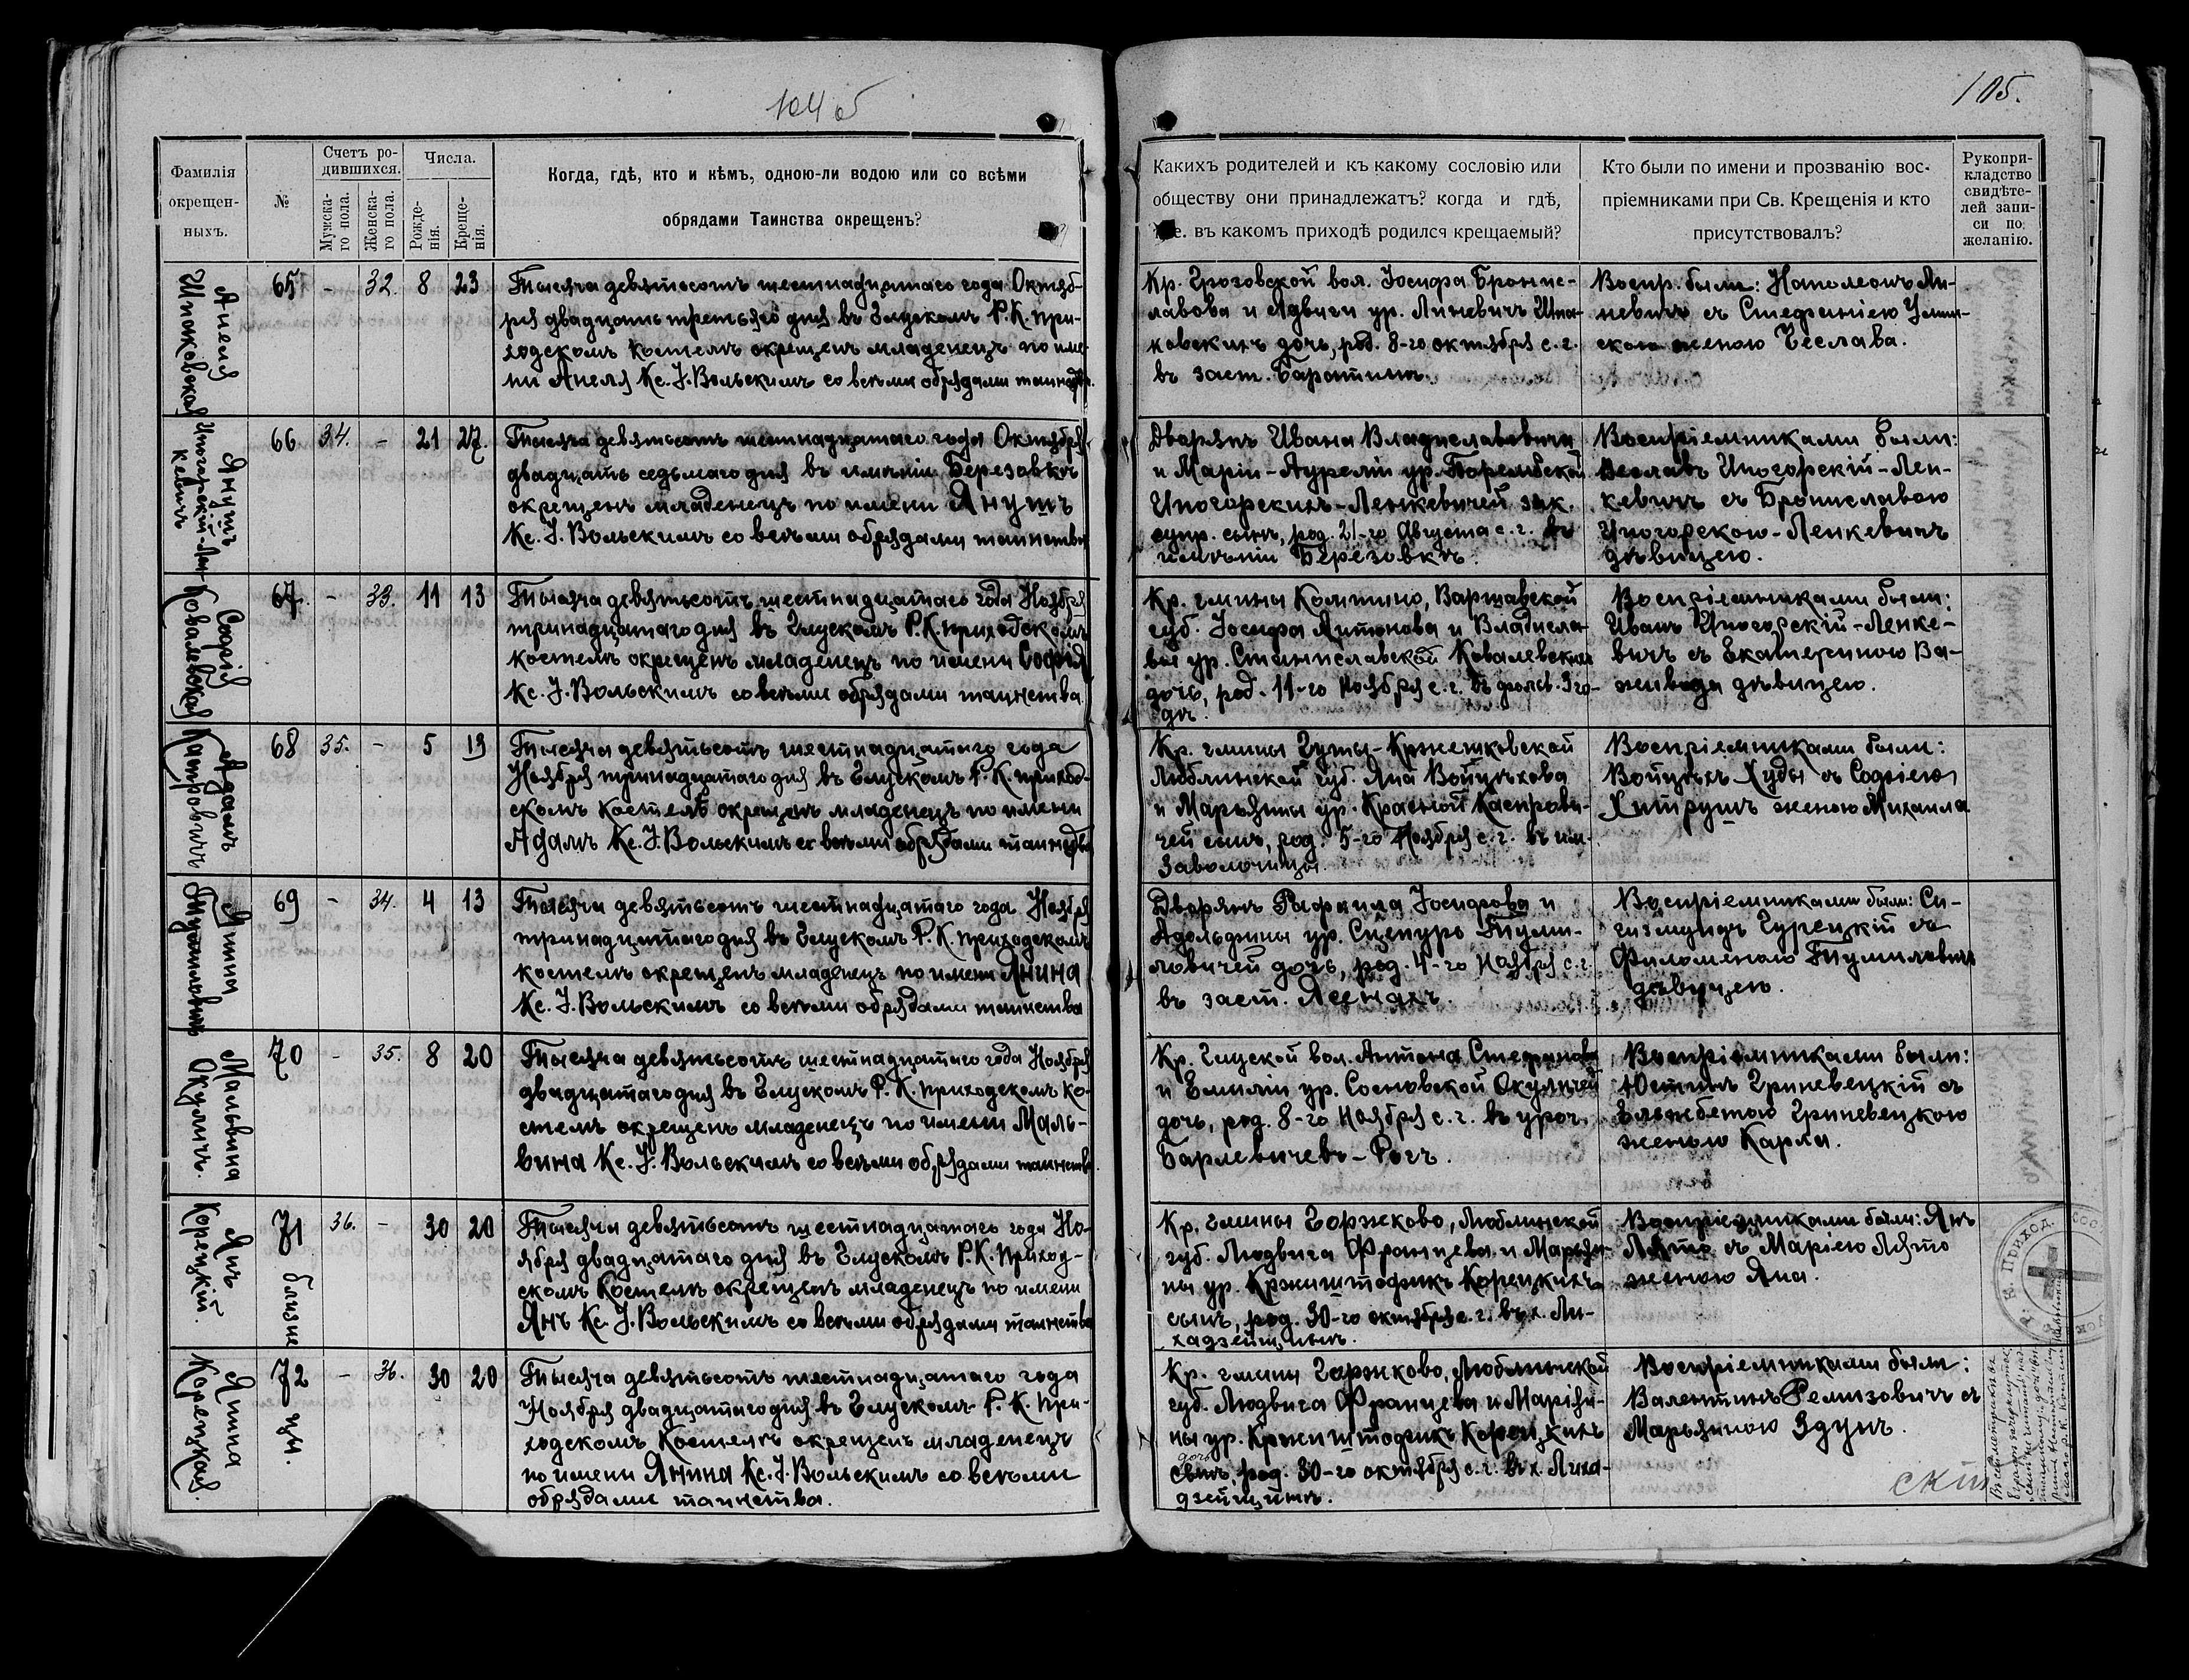 104 об
105.
Фамилія
окрещен-
ныхъ.
№
Счетъ ро-
дившихся.
Мужска-
го пола.
Женска-
го пола.
Числа.
Рожде-
нія.
Креще-
нія.
Когда, гдѣ, кто и кѣмъ, одною-ли водою или со всѣми
обрядами Таинства окрещенъ?
Какихъ родителей и къ какому сословію или
обществу они принадлежатъ? когда и гдѣ,
въ какомъ приходѣ родился крещаемый?
Кто были по имени и прозванію вос-
пріемниками при Св. Крещенія и кто
присутствовалъ?
Рукопри-
кладство
свидѣте-
лей запи-
си по
желанію.
Анеля
Шпаковская
65 - 32. 8 23
Тысяча девятьсотъ шестнадцатаго года Октяб-
ря двадцать третьяго дня въ Глускомъ Р.К. при-
ходскомъ костелѣ окрещенъ младенецъ по име-
ни Анеля Кс. J. Вольскимъ со всѣми обрядами таинства.
Кр. Грозовской вол. Іосифа Бронис-
лавова и Ядвиги ур. Линевичъ Шпа-
ковскихъ дочь, род. 8-го октября с. г.
въ заст. Баратинѣ.
Воспр. были: Наполеонъ Ли-
невичъ съ Стефаніею
женою Чеслава.
Янушъ
Ипогорскій-Лен-
кевичъ
66 34. - 21 27.
Тысяча девятьсотъ шестнадцатаго года Октября
двадцать седьмаго дня въ имѣніи Березовкѣ
окрещенъ младенецъ по имени Янушъ
Кс. J. Вольскимъ со всѣми обрядами таинства
Дворянъ Ивана Владиславовича
и Маріи-Аурелии ур. Порембской
Ипогорскихъ-Ленкевичей зак.
супр. сынъ, род. 21-го Августа с. г. въ
имѣніи Березовкѣ.
Воспріемниками были:
Веславъ Ипогорскій-Лен-
кевичъ съ Брониславою
Ипогорскою-Ленкевичъ
дѣвицею.
Софія
Ковалевская
67. - 33. 11 13
Тысяча девятьсотъ шестнадцатаго года Ноября
тринадцатаго дня въ Глускомъ Р.К. приходскомъ
костелѣ окрещенъ младенецъ по имени Софія
Кс. J. Вольскимъ со всѣми обрядами таинства
Кр. гмины Компино, Варшавской
губ. Іосифа Антонова и Владисла-
вы ур. Станиславской Ковалевскихъ
дочь, род. 11-го Ноября с. г. въ фольв. Зго-
дѣ.
Воспріемниками были:
Иванъ Ипогорскій-Ленке-
вичъ съ Екатериною Ва-
дѣвицею.
Адамъ
Каспровичъ
68 35. - 5 13
Тысяча девятьсотъ шестнадцатаго года
Ноября тринадцатаго дня въ Глускомъ Р.К. приход-
скомъ костелѣ окрещенъ младенецъ по имени
Адамъ Кс. J. Вольскимъ со всѣми обрядами таинства
Кр. гмины Гуты-Кржешковской
Люблинской губ. Яна Войцѣхова
и Марьяны ур. Красной Каспрови-
чей сынъ, род. 5-го Ноября с. г. въ им.
Заволочицы.
Воспріемниками были:
Войцѣхъ Худы съ Софіею
Хитрушъ женою Михаила
Янина
Тумиловичъ
69 - 34. 4 13
Тысяча девятьсотъ шестнадцатаго года Ноября
тринадцатаго дня въ Глускомъ Р.К. приходскомъ
костелѣ окрещенъ младенецъ по имени Янина
Кс. J. Вольскимъ со всѣми обрядами таинства
Дворянъ Рафаила Іосифова и
Адольфины ур. Сцепуро Туми-
ловичей дочь, род. 4-го Ноября с. г.
въ заст. Ясенахъ.
Воспріемниками были: Си-
гизмундъ Гурецкій съ
Филоменою Тумиловичъ
дѣвицею.
Мальвина
Окуличъ.
70 - 35. 8 20
Тысяча девятьсотъ шестнадцатаго года Ноября
двадцатаго дня въ Глускомъ Р.К. приходскомъ ко-
стелѣ окрещенъ младенецъ по имени Маль-
вина Кс. J. Вольскимъ со всѣми обрядами таинства.
Кр. Глуской вол. Антона Стефанова
и Емиліи ур. Сосновской Окуличей
дочь, род. 8-го Ноября с. г. въ уроч.
Барлевичевъ-Рогъ.
Воспріемниками были:
Юстинъ Гриневецкій съ
Эльжбетою Гриневецкою
женою Карла.
Янъ
Корецкій.
71 36. - 30 20
близне
Тысяча девятьсотъ шестнадцатаго года Но-
ября двадцатаго дня въ Глускомъ Р.К. приход-
скомъ Костелѣ окрещенъ младенецъ по имени
Янъ Кс. J. Вольскимъ со всѣми обрядами таинства
Кр. гмины Горжково, Люблинской
губ. Людвига Францева и Марьян-
ны ур. Кржиштофикъ Корецкихъ
сынъ, род. 30-го октября с. г. въ х. Ли-
хадзейщинѣ.
Воспріемниками были: Янъ
Лято съ Маріею Лято
женою Яна.
Янина
Корецкая.
72 - 36. 30 20
цы.
Тысяча девятьсотъ шестнадцатаго года
Ноября двадцатаго дня въ Глускомъ Р.К. при-
ходскомъ Костелѣ окрещенъ младенецъ
по имени Янина Кс. J. Вольскимъ со всѣми
обрядами таинства.
Кр. гмины Горжково, Люблинской
губ. Людвига Францева и Марьян-
ны ур. Кржиштофикъ Корецкихъ
дочь
сынъ, род. 30-го октября с. г. въ х. Лиха-
дзейщинѣ.
Воспріемниками были:
Валентинъ Ремизовичъ съ
Марьянною Здунъ.